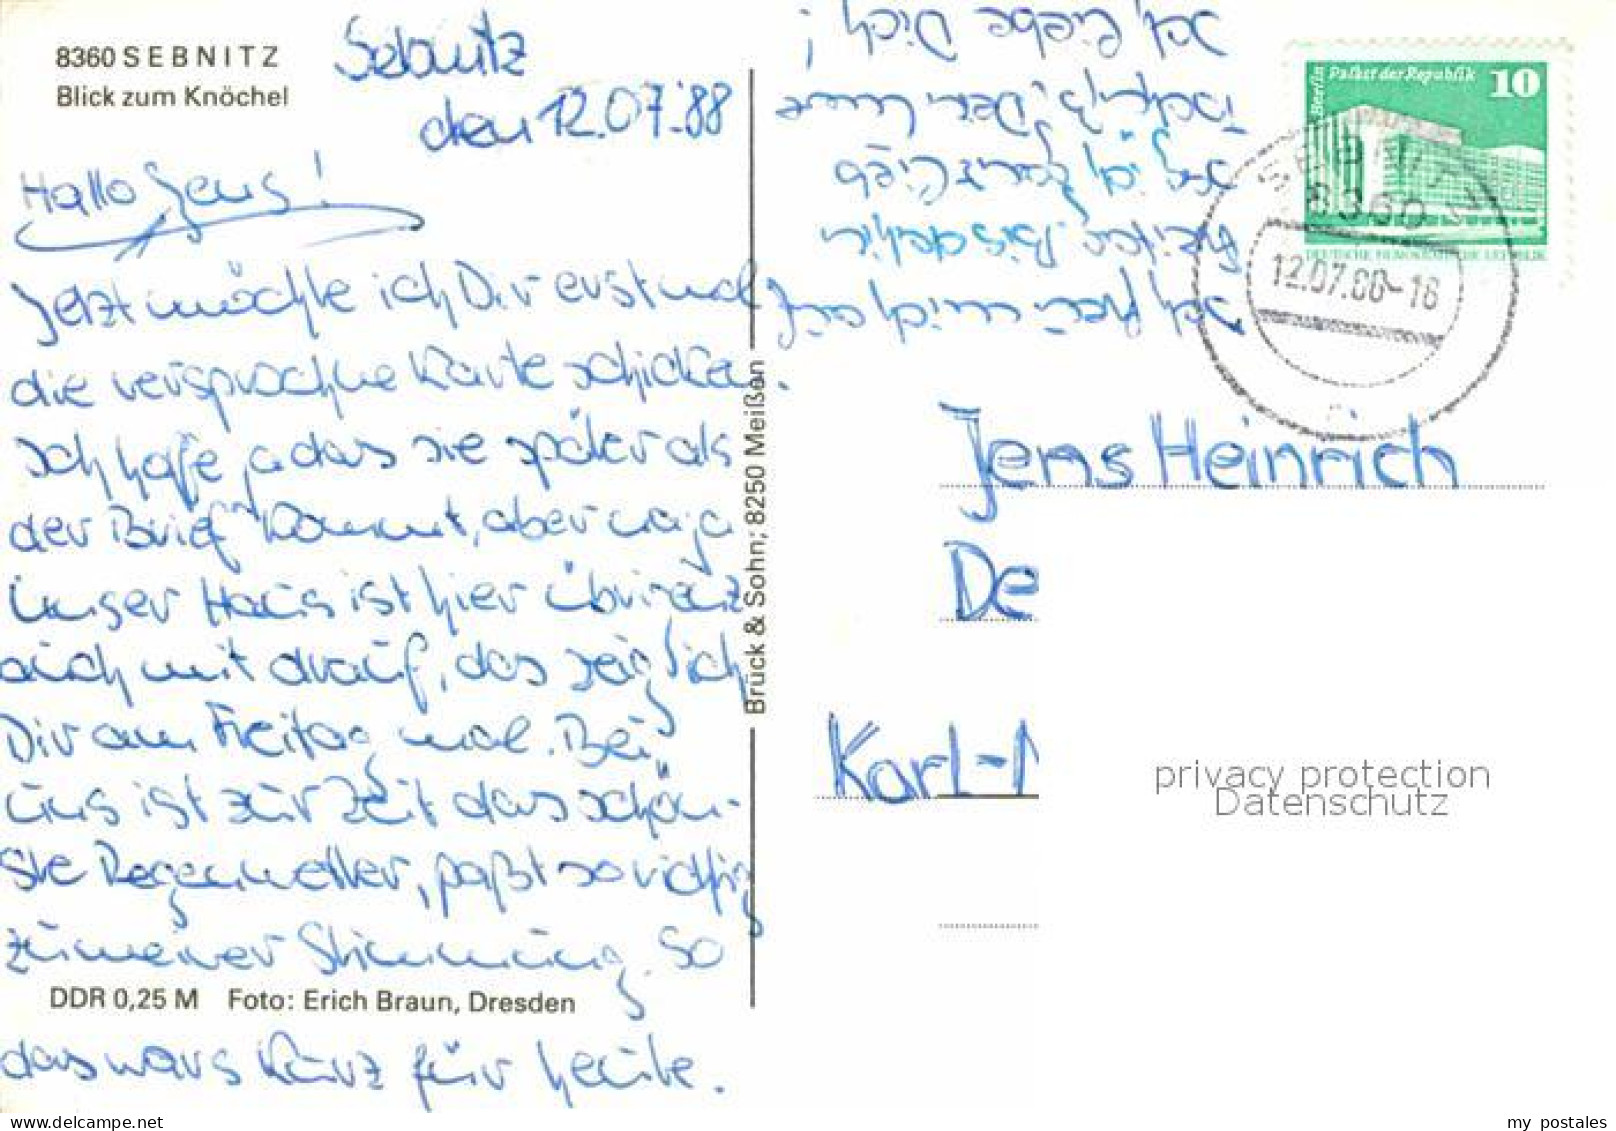 8360 SEBNITZ
Blick zum Knöchel
Sebnitz
den 12.07.88
Hallo Jens!
Jetzt möchte ich Dir erst mal
die versprochene Karte schicken.
Ich hoffe ja das sie später als
der Brief kommt, aber naja
Unser Haus ist hier übrigens
auch mit drauf, das zeig ich
Dir am Freitag mal. Bei
uns ist zur Zeit das schön-
ste Regenwetter, paßt so richtig
zu meiner Stimmung. So
DDR 0,25 M Foto: Erich Braun, Dresden
das wars kurz für heute.
Brück & Sohn; 8250 Meißen
Ich freu mich auf
Freitag. Bis dahin
hab ich Dich ganz lieb
Tschüß, Dein
Ich liebe Dich!
Berlin Palast der Republik 10
DEUTSCHE DEMOKRATISCHE REPUBLIK
SEBNITZ 1
8360
12.07.88-16
Jens Heinrich
De
Karl-M
privacy protection
Datenschutz
my postales